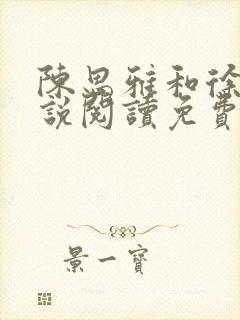 陳思雅和徐
說閱讀免費
景一寶